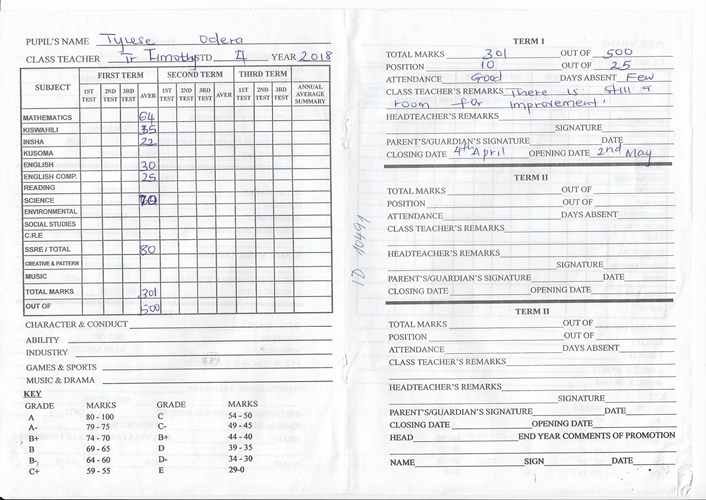 PUPIL'S NAME Tyrese Odera
CLASS TEACHER Tr Timothy STD. 4 YEAR 2018
SUBJECT FIRST TERM SECOND TERM THIRD TERM ANNUAL AVERAGE SUMMARY
1ST TEST 2ND TEST 3RD TEST AVER 1ST TEST 2ND TEST 3RD TEST AVER 1ST TEST 2ND TEST 3RD TEST
MATHEMATICS 64
KISWAHILI 35
INSHA 22
KUSOMA
ENGLISH 30
ENGLISH COMP. 25
READING
SCIENCE 70
ENVIRONMENTAL
SOCIAL STUDIES
C.R.E
SSRE / TOTAL 80
CREATIVE & PATTERN
MUSIC
TOTAL MARKS 301
OUT OF 500
CHARACTER & CONDUCT
ABILITY
INDUSTRY
GAMES & SPORTS
MUSIC & DRAMA
KEY
GRADE MARKS GRADE MARKS
A 80 - 100 C 54 - 50
A- 79 - 75 C- 49 - 45
B+ 74 - 70 B+ 44 - 40
B 69 - 65 D 39 - 35
B- 64 - 60 D- 34 - 30
C+ 59 - 55 E 29-0
ID 10491
TERM I
TOTAL MARKS 301 OUT OF 500
POSITION 10 OUT OF 25
ATTENDANCE Good DAYS ABSENT Few
CLASS TEACHER'S REMARKS There is still a
room for improvement.
HEADTEACHER'S REMARKS
SIGNATURE
PARENT'S/GUARDIAN'S SIGNATURE DATE
CLOSING DATE 4th April OPENING DATE 2nd May
TERM II
TOTAL MARKS OUT OF
POSITION OUT OF
ATTENDANCE DAYS ABSENT
CLASS TEACHER'S REMARKS
HEADTEACHER'S REMARKS
SIGNATURE
PARENT'S/GUARDIAN'S SIGNATURE DATE
CLOSING DATE OPENING DATE
TERM II
TOTAL MARKS OUT OF
POSITION OUT OF
ATTENDANCE DAYS ABSENT
CLASS TEACHER'S REMARKS
HEADTEACHER'S REMARKS
SIGNATURE
PARENT'S/GUARDIAN'S SIGNATURE DATE
CLOSING DATE OPENING DATE
HEAD END YEAR COMMENTS OF PROMOTION
NAME SIGN DATE